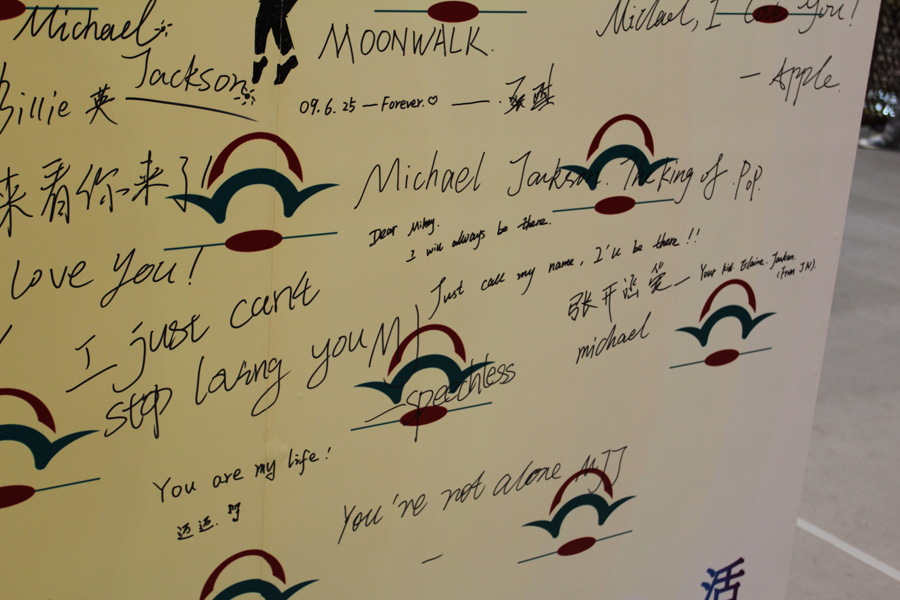 Michael
Jackson
MOONWALK.
Michael, I Love You!
— Apple.
Billie 英
09.6.25 — Forever.♡ —
来看你来了!
Michael Jackson. The King of Pop.
Dear Mikey.
I will always be there.
Love you!
Just call my name, I'll be there!!
张开涵 爱 — Your kid Elaine. Jackson.
(From JN).
I just can't
stop loving you MJ
michael
— speechless
You are my life!
迈迈.
You're not alone MJJ
活